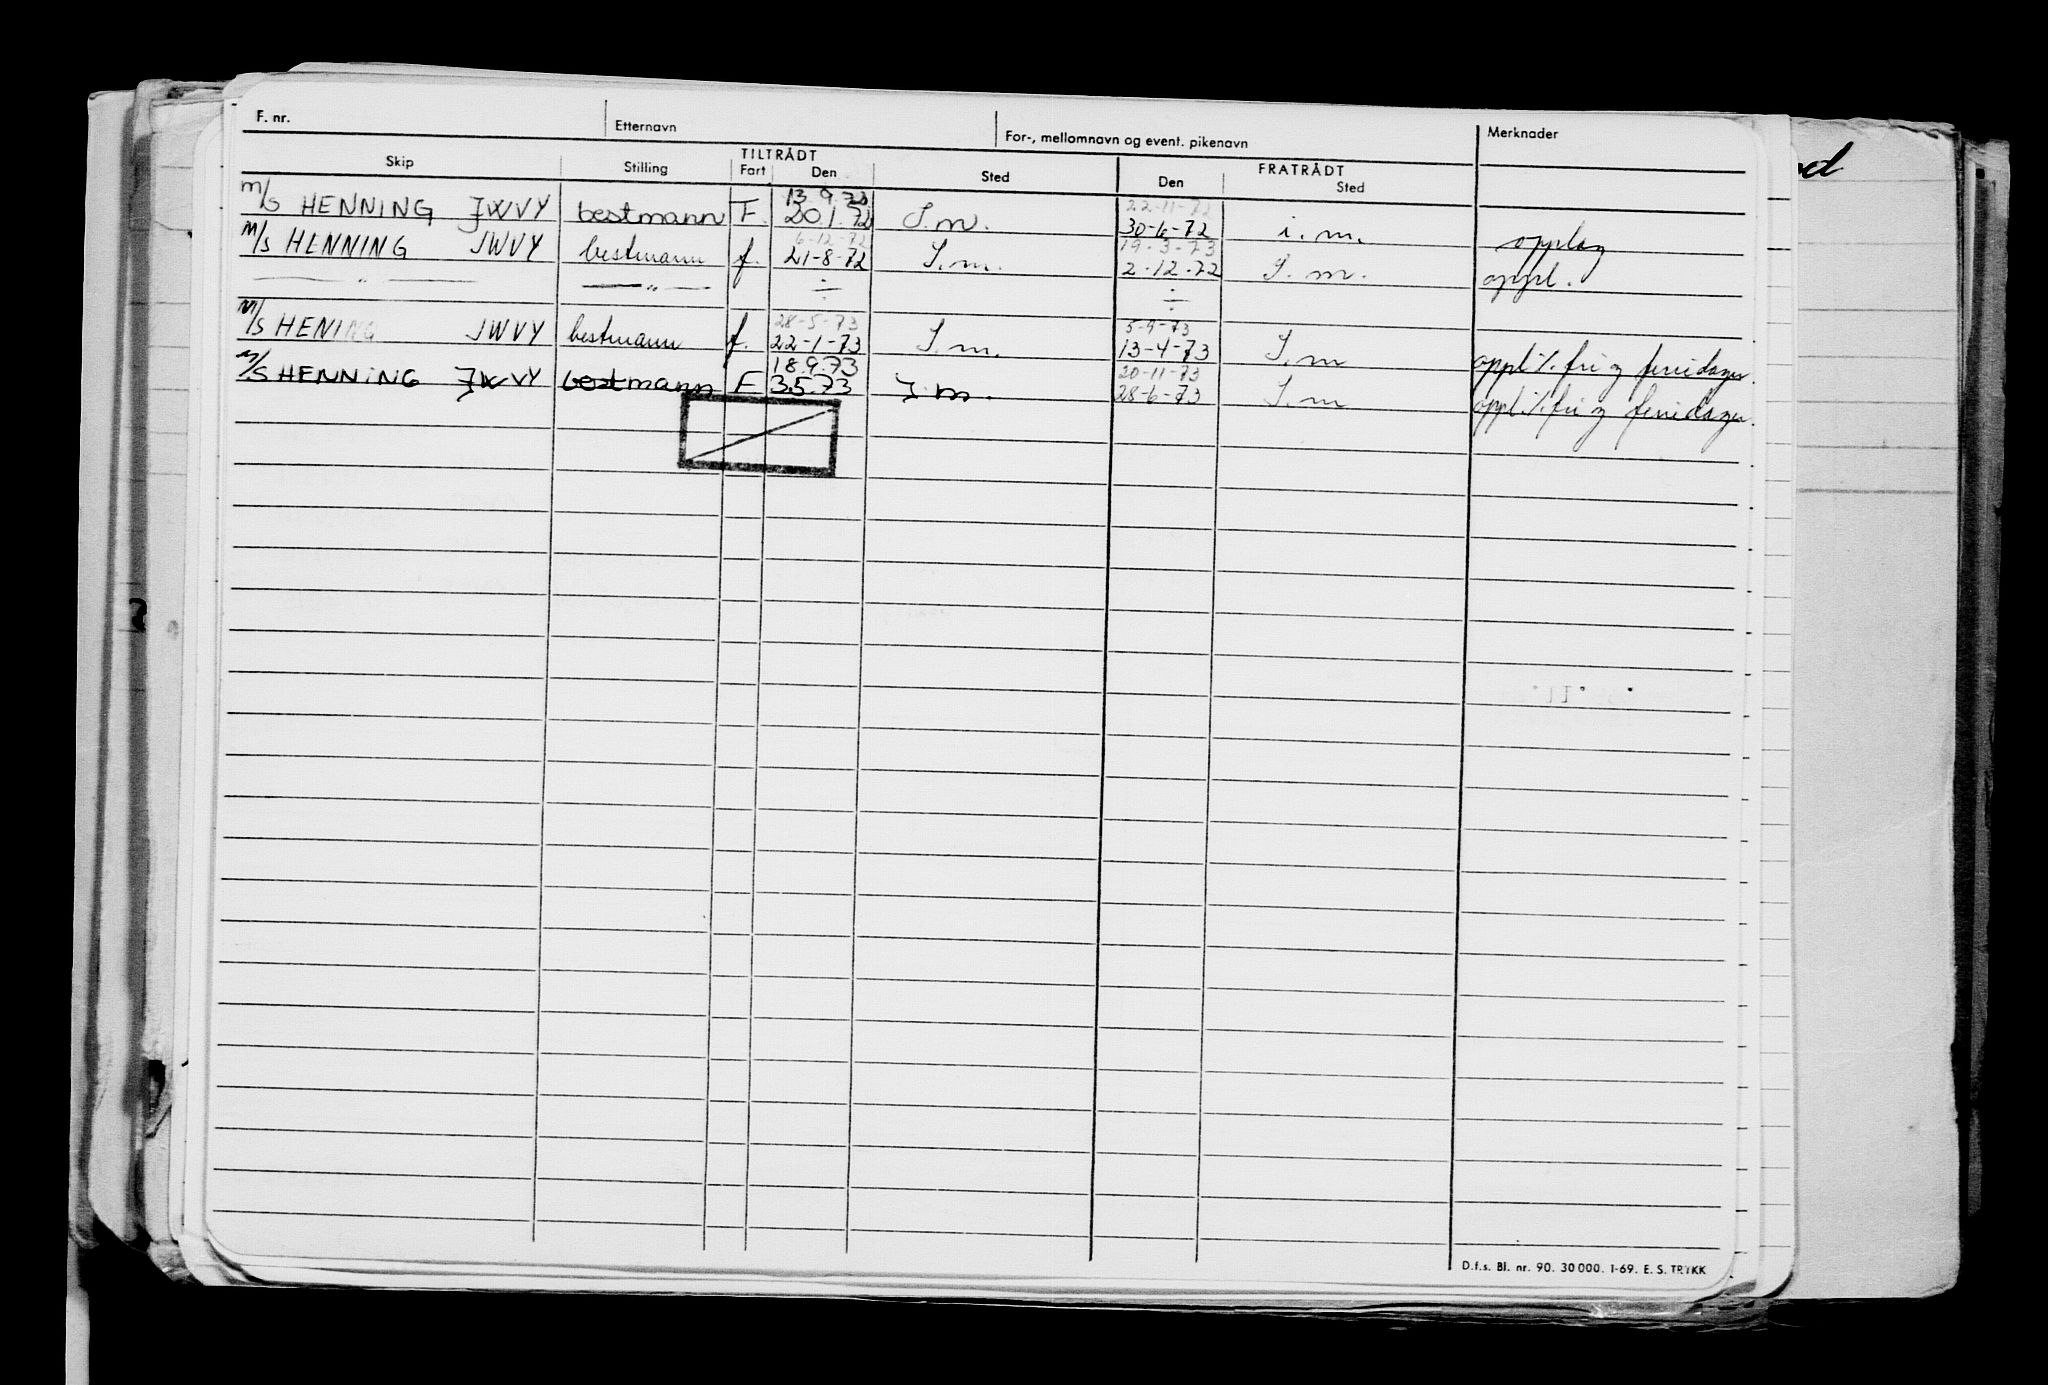 F. nr. Etternavn For-, mellomnavn og event. pikenavn Merknader
TILTRÅDT FRATRÅDT
Skip Stilling Fart Den Sted Den Sted
13.9.72 22-11-72
M/S HENNING JWVY bestmann F. 20.1.72 I.m. 30-6-72 i.m. opplag
6-12-72 19-3-73
M/S HENNING JWVY bestmann f. 21-8-72 I.m. 2-12-72 I.m. oppl.
— " — — " — ÷ ÷
28-5-73 5-9-73
M/S HENING JWVY bestmann f. 22-1-73 I.m. 13-4-73 I.m oppl % fri og feriedager.
18.9.73 20-11-73
M/S HENNING JWVY bestmann F 3.5.73 I.m. 28-6-73 I.m oppl % fri og feriedager.
D.f.s. Bl. nr. 90. 30 000. 1-69. E. S. TRYKK